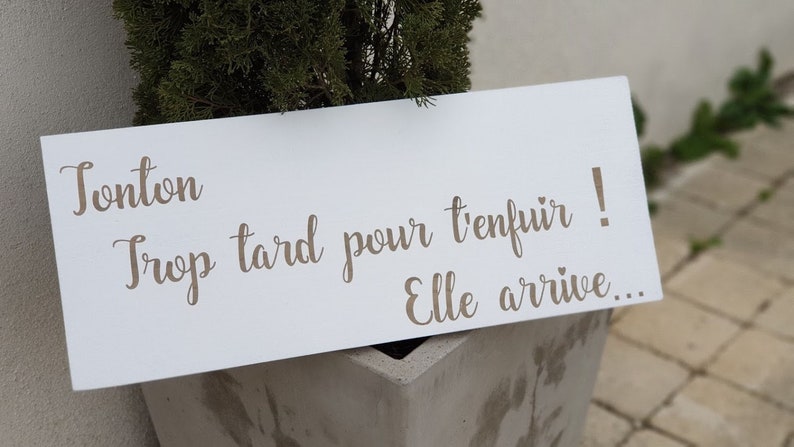 Tonton
Trop tard pour t'enfuir !
Elle arrive...